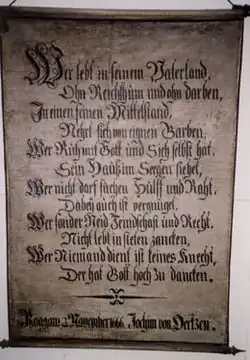 Wer lebt in seinem Vaterland,
Ohn Reichthum und ohn darben,
In einen feinen Mittelstand,
Nehrt sich von eignen Garben.
Wer Ruh mit Gott und Sich selbst hat,
Sein Hauß im Seegen siehet,
Wer nicht darf suchen Hülff und Raht,
Dabey auch ist vergnügt.
Wer sonder Neid Feindschaft und Recht,
Nicht lebt in steten zancken,
Wer Niemand dient ist keines Knecht,
Der hat Gott hoch zu dancken.
November 1666. Jochim von Oertzen.